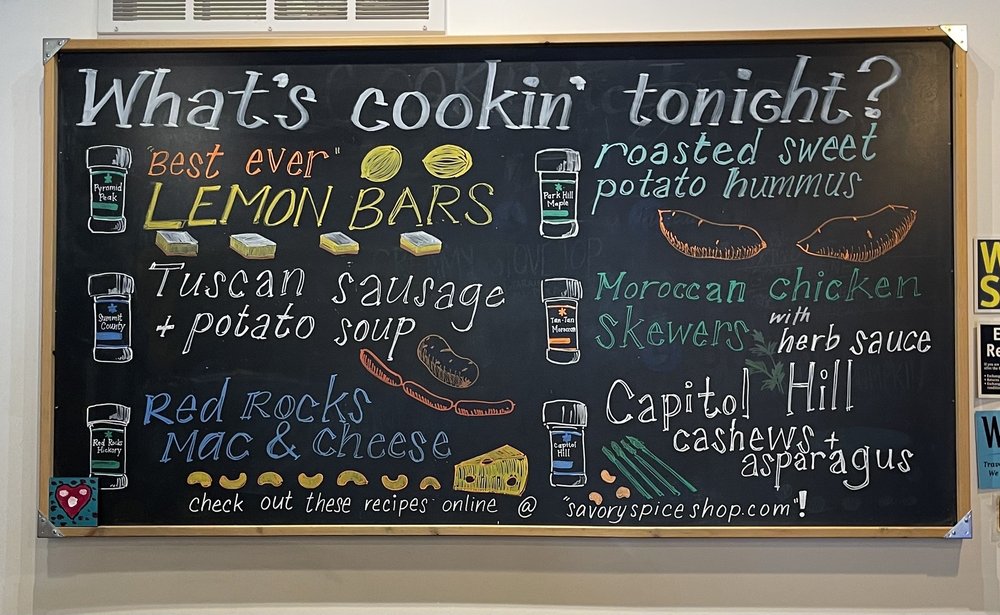 What's cookin' tonight?
Pyramid
Peak
"Best ever"
LEMON BARS
Summit
County
Tuscan sausage
+ potato soup
Red Rocks
Hickory
Red Rocks
Mac & Cheese
Park Hill
Maple
roasted sweet
potato hummus
Tan-Tan
Moroccan
Moroccan chicken
skewers with
herb sauce
Capitol
Hill
Capitol Hill
cashews +
asparagus
check out these recipes online @ "savoryspiceshop.com"!